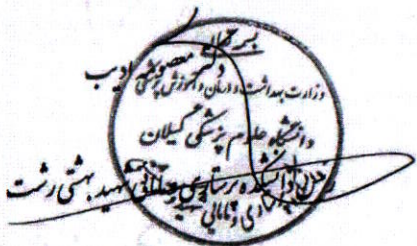 بسمه تعالی
دکتر معصومه ادیب
وزارت بهداشت، درمان و آموزش پزشکی
دانشگاه علوم پزشکی گیلان
دانشکده پرستاری و مامایی شهید بهشتی رشت
مامایی